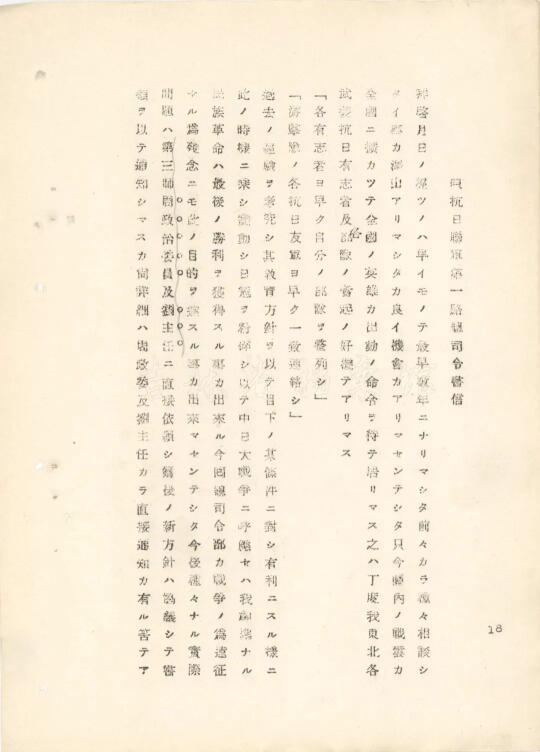 抗日聯軍第一路總司令書信
拜啓月日ノ經ツノハ早イモノテ最早數年ニナリマシタ前々カラ種々相談シ
タイ事カ澤山アリマシタカ良イ機會カアリマセンテシタ只今關內ノ戰雲カ
全國ニ擴カツテ全國ノ英雄カ出動ノ命令ヲ待テ居リマス之ハ丁度我東北各
武裝抗日有志者及各部隊ノ奮起ノ好機テアリマス
「各有志君ヨ早ク自分ノ部隊ヲ整列シ」
「游擊隊ノ各抗日友軍ヨ早ク一致連絡シ」
過去ノ經驗ヲ參究シ其教育方針ヲ以テ目下ノ某條件ニ對シ有利ニスル樣ニ
此ノ時機ニ乘シ活動シ日寇ヲ粉碎シ以テ中日大戰爭ニ呼應セハ我神聖ナル
民族革命ハ最後ノ勝利ヲ獲得スル事カ出來ル今回總司令部カ戰爭ノ爲遠征
スル爲殘念ニモ此ノ目的ヲ達スル事カ出來マセンテシタ今後種々ナル實際
問題ハ第三師周政治委員及劉主任ニ直接依賴シ爾後ノ新方針ハ協議シテ書
類ヲ以テ通知シマスカ尙詳細ハ周政委及劉主任カラ直接通知カ有ル筈テア
18